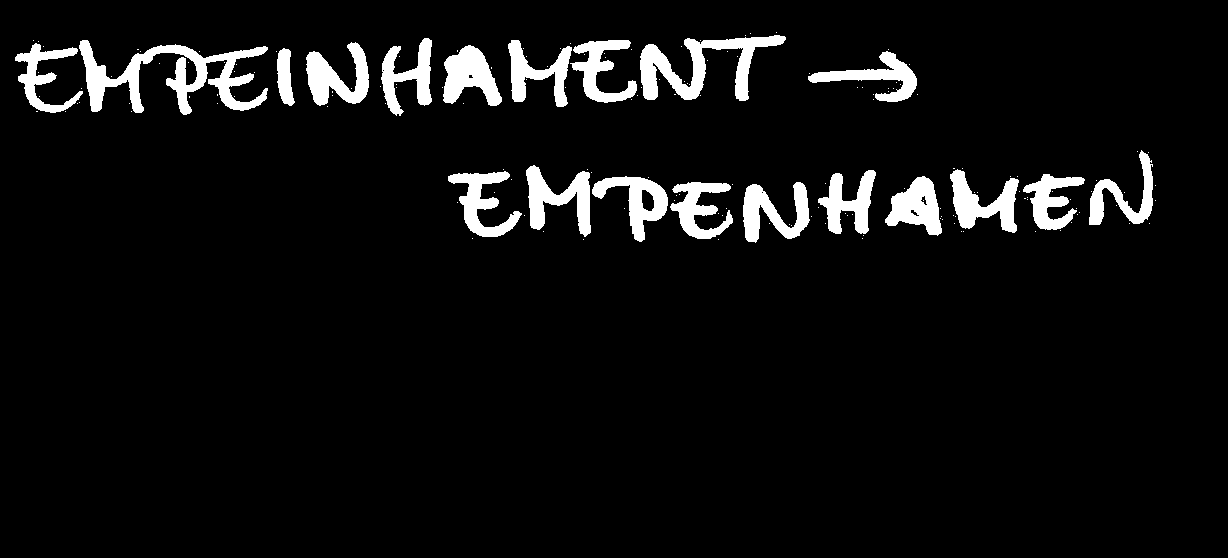 EMPEINHAMENT →
EMPENHAMEN